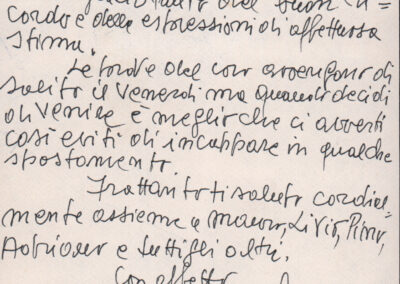 del buon ri=
cordo e delle espressioni di affettuosa
stima.
Le prove del coro avvengono di
solito il Venerdì ma quando decidi
di venire è meglio che ci avverti
così eviti di incappare in qualche
spostamento.
Frattanto ti saluto cordial=
mente assieme a Mauro, Livio, Pino,
Adriano e tutti gli altri.
Con affetto